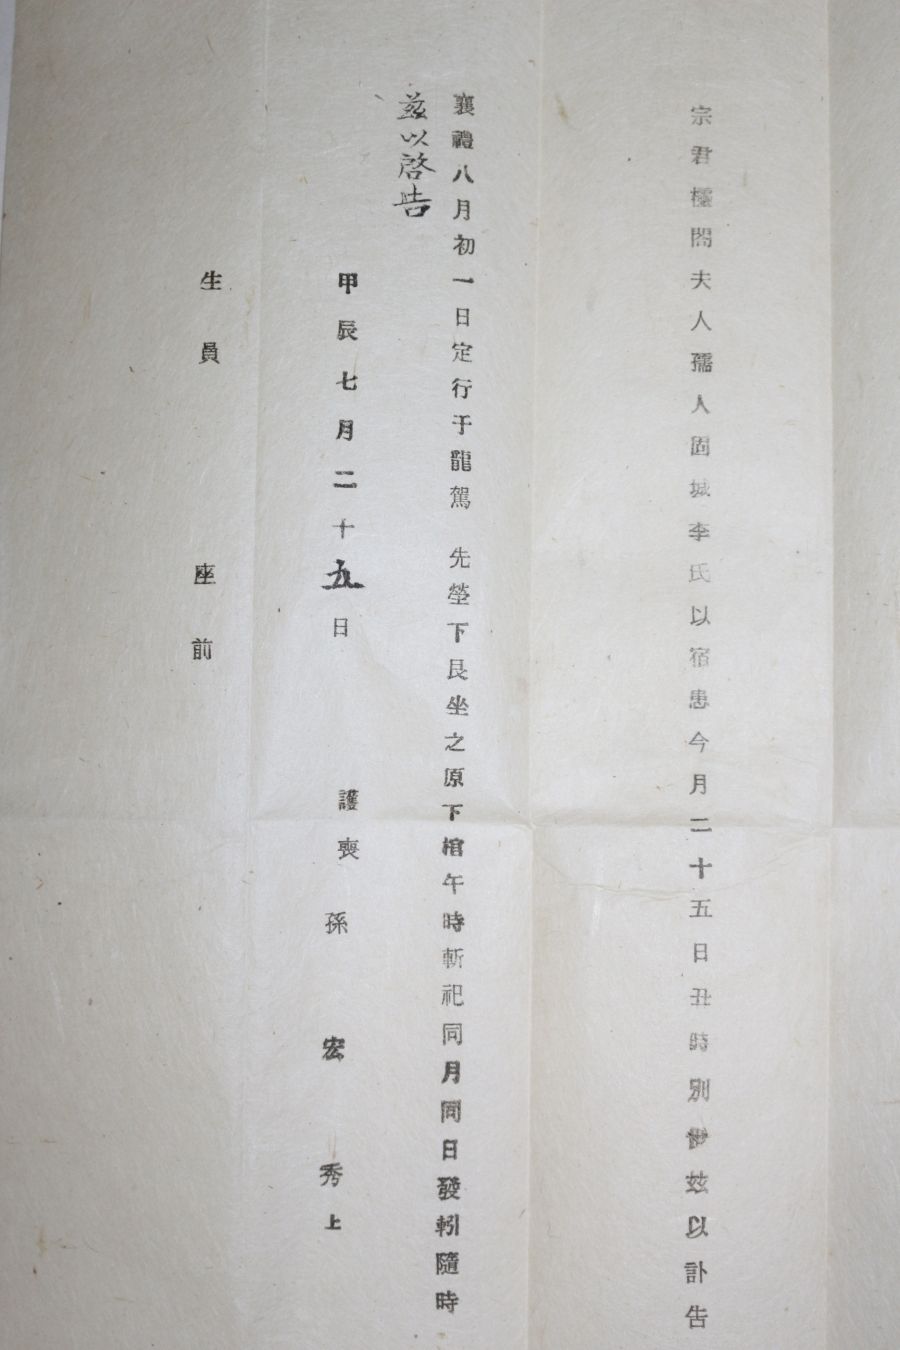 宗君極閤夫人孺人固城李氏以宿患今月二十五日丑時別世玆以訃告
襄禮八月初一日定行于龍駕 先塋下艮坐之原下棺午時斬祀同月同日發軔隨時
玆以啓告
甲辰七月二十五日 護喪 孫 宏 秀 上
生員 座前